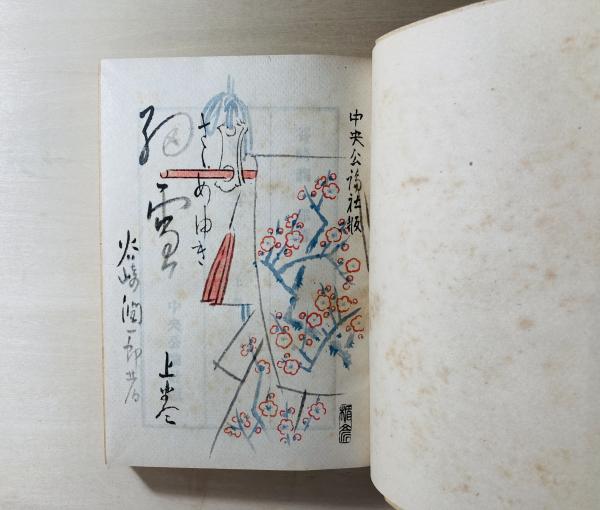 中央公論社版
さゝめゆき
細雪
谷崎潤一郎著
上巻
中央公